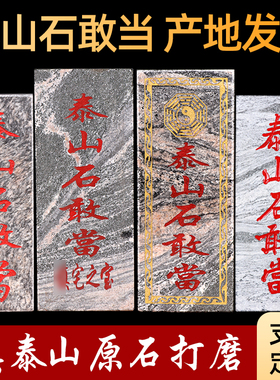 山石敢当 产地发
泰山石敢當
泰山石敢當
宅之宝
泰山石敢當
泰山石敢當
泰山原石打磨
支
定